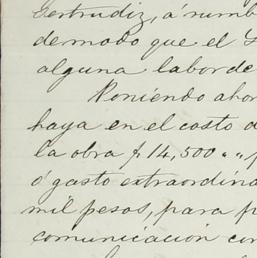 Gertrudiz, á rumb
de modo que el G
alguna labor de
Poniendo ahor
haya en el costo d
la obra $14,500 „ „ p
ó gasto extraordina
mil pesos, para p
comunicación con